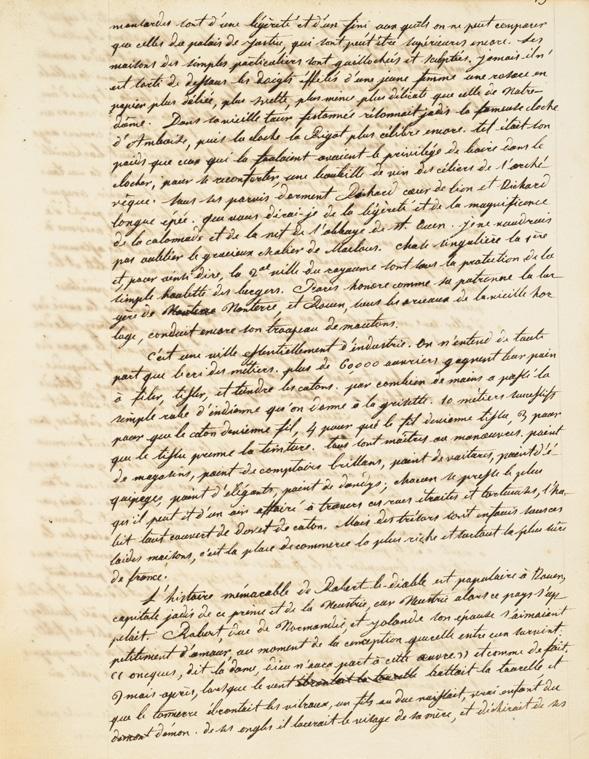 montardes sont d'une légèreté et d'un fini aux quels on ne peut comparer
que celles du palais de Justice, qui sont peut être supérieures encore. Les
maisons des simples particuliers sont guillochées et sculptées, jamais il n'
est sorti de dessous les doigts effilés d'une jeune femme une rosace en
papier plus déliée, plus svelte, plus menue plus délicate que celle de Notre-
dâme. Dans la vieille tour festonnée résonnait jadis la fameuse cloche
d'Amboise, puis la cloche la Rigot plus célèbre encore. tel était son
poids que ceux qui la foulaient avaient le privilège de boire dans le
clocher, pour se réconforter une bouteille de vin des céliers de l'arché
vêque. Sous ses parvis dorment Richard cœur de lion et Richard
longue épée. que vous dirai-je de la légèreté et de la magnificence
de la colonnade et de la nef de l'abbaye de St. Ouen. je ne voudrais
pas oublier le gracieux escalier de Maclous. chose singulière la 1ère
et, pour ainsi dire, la 2de ville du royaume sont sous la protection de la
simple houlette des bergers. Paris honore comme sa patronne la ber
gère de Nanterre, et Rouen, sous les arceaux de la vieille hor
loge, conduit encore son troupeau de moutons.
C'est une ville essentiellement d'industrie. On n'entend de toute
part que le cri des métiers. plus de 60000 ouvriers gagnent leur pain
à filer, tisser, et teindre les cotons. par combien de mains a passé la
simple robe d'indienne qu'on donne à la grisette. 10 métiers successifs
pour que le coton devienne fil, 4 pour que le fil devienne tissu, 3 pour
que le tissu prenne la teinture. tous sont maîtres ou manœuvres. point
de magasins, point de comptoirs brillans, point de voitures, point d'é
quipages, point d'élégants, point de dandys; chacun se presse le plus
qu'il peut et d'un air affairé à travers ces rues étroites et tortueuses, l'ha
bit tout couvert de duvet de coton. Mais des trésors sont enfouis sous ces
laides maisons, c'est la place de commerce la plus riche et surtout la plus sûre
de france.
L'histoire mémorable de Robert-le-diable est populaire à Rouen,
capitale jadis de ce prince et de la Neustrie, car Neustrie alors ce pays s'ap
pelait. Robert duc de Normandie et yolande son épouse s'aimaient
petitement d'amour, au moment de la conception querelle entre eux survint:
« oncques, dit la dame, dieu n'aura part à cette œuvre » et comme de fait,
9 mois après, lorsque le vent ébranlait la tourelle battait la tourelle et
que le tonnerre ébranlait les vitraux, un fils au duc naissait, vrai enfant du
démon. de ses ongles il lacerait le visage de sa mère, et déchirait de ses